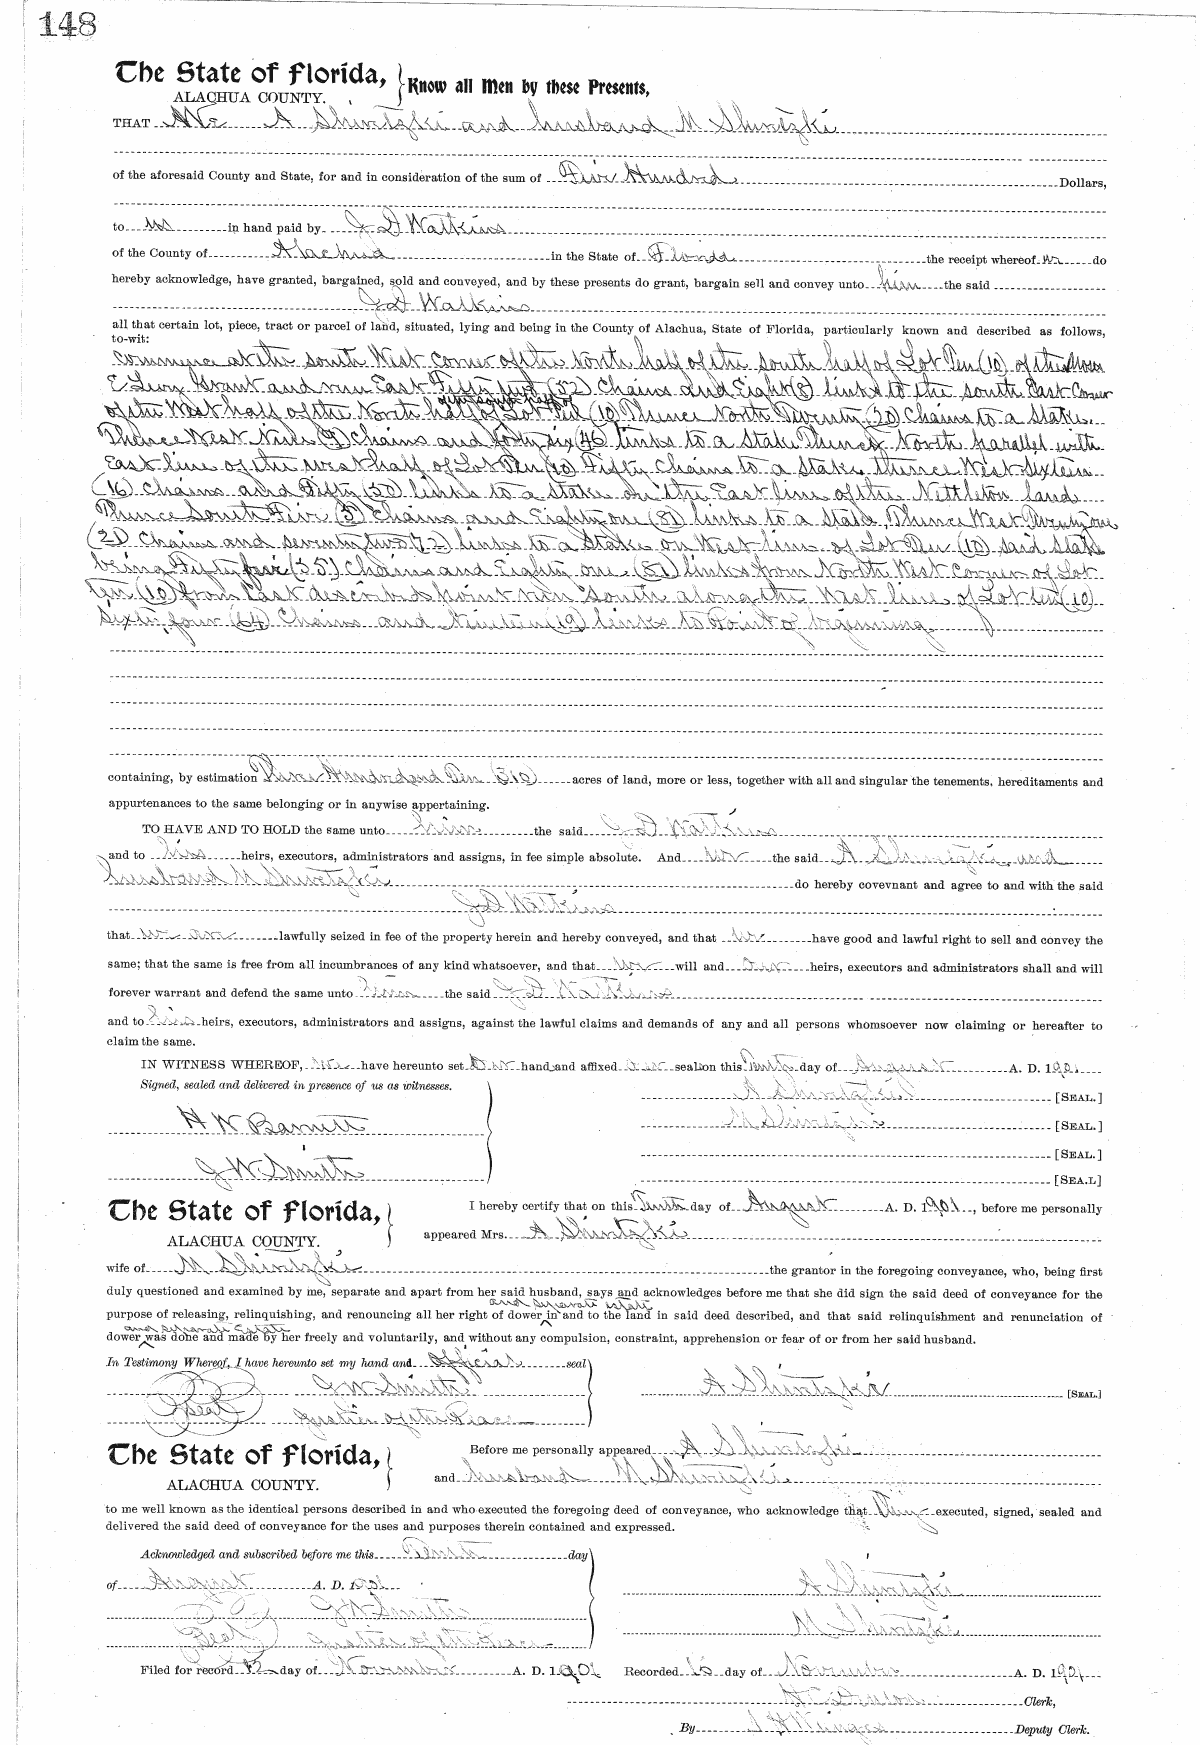 148
The State of Florida,
ALACHUA COUNTY.
Know all Men by these Presents,
THAT We A Shintzki and husband M Shintzki
of the aforesaid County and State, for and in consideration of the sum of Five Hundred Dollars,
to us in hand paid by J D Watkins
of the County of Alachua in the State of Florida the receipt whereof we do
hereby acknowledge, have granted, bargained, sold and conveyed, and by these presents do grant, bargain sell and convey unto him the said
J D Watkins
all that certain lot, piece, tract or parcel of land, situated, lying and being in the County of Alachua, State of Florida, particularly known and described as follows,
to-wit:
Commence at the South West Corner of the North half of the South half of Lot Ten (10) of the Moses
E Levy Grant and run East Fifty two (52) Chains and Eight (8) links to the South East Corner
of the South half of
of the West half of the North half of Lot Ten (10) Thence North Twenty (20) Chains to a Stake
Thence West Nine (9) Chains and forty six (46) links to a Stake Thence North parallel with
East line of the west half of Lot Ten (10) Fifty Chains to a Stake thence West Sixteen
(16) Chains and Fifty (50) links to a Stake on the East line of the Nettleton land
Thence South Five (5) Chains and Eighty one (81) links to a Stake, Thence West Twenty one
(21) Chains and seventy two (72) links to a Stake on West line of Lot Ten (10) said Stake
being Fifty five (55) Chains and Eighty one (81) links from North West Corner of Lot
Ten (10) from last described point run South along the West line of Lot ten (10)
Sixty four (64) Chains and Nineteen (19) links to Point of beginning
containing, by estimation Three Hundred and Ten (310) acres of land, more or less, together with all and singular the tenements, hereditaments and
appurtenances to the same belonging or in anywise appertaining.
TO HAVE AND TO HOLD the same unto him the said J D Watkins
and to his heirs, executors, administrators and assigns, in fee simple absolute. And we the said A Shintzki and
husband M Shintzki do hereby covevnant and agree to and with the said
J D Watkins
that we are lawfully seized in fee of the property herein and hereby conveyed, and that we have good and lawful right to sell and convey the
same; that the same is free from all incumbrances of any kind whatsoever, and that we will and our heirs, executors and administrators shall and will
forever warrant and defend the same unto him the said J D Watkins
and to his heirs, executors, administrators and assigns, against the lawful claims and demands of any and all persons whomsoever now claiming or hereafter to
claim the same.
IN WITNESS WHEREOF, we have hereunto set our hand and affixed our seal on this Tenth day of August A. D. 1901
Signed, sealed and delivered in presence of us as witnesses.
A Shintzki [SEAL.]
H W Barnett
M Shintzki [SEAL.]
[SEAL.]
J W Smith
[SEA.L]
The State of Florida,
ALACHUA COUNTY.
I hereby certify that on this Tenth day of August A. D. 1901, before me personally
appeared Mrs. A Shintzki
wife of M Shintzki the grantor in the foregoing conveyance, who, being first
duly questioned and examined by me, separate and apart from her said husband, says and acknowledges before me that she did sign the said deed of conveyance for the
and separate estate
purpose of releasing, relinquishing, and renouncing all her right of dower in and to the land in said deed described, and that said relinquishment and renunciation of
and separate Estate
dower was done and made by her freely and voluntarily, and without any compulsion, constraint, apprehension or fear of or from her said husband.
In Testimony Whereof, I have hereunto set my hand and official seal
J W Smith A Shintzki [SEAL.]
Seal Justice of the Peace
The State of Florida,
ALACHUA COUNTY.
Before me personally appeared A Shintzki
and husband M Shintzki
to me well known as the identical persons described in and who executed the foregoing deed of conveyance, who acknowledge that They executed, signed, sealed and
delivered the said deed of conveyance for the uses and purposes therein contained and expressed.
Acknowledged and subscribed before me this Tenth day
of August A. D. 1901
A Shintzki
J W Smith
M Shintzki
Seal Justice of the Peace
Filed for record 12 day of November A. D. 1901 Recorded 15 day of November A. D. 1901
Clerk,
By Deputy Clerk.